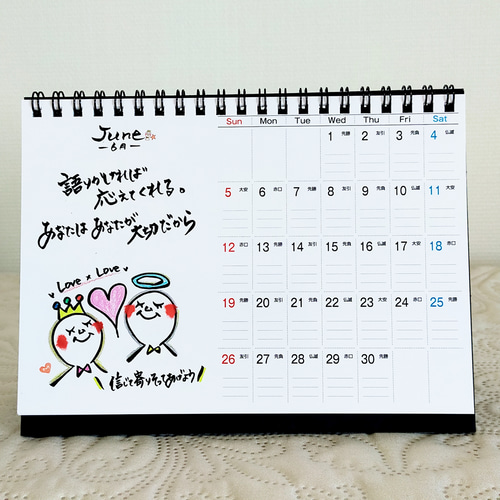 June
-6月-
語りかければ
応えてくれる。
あなたは あなたが 大切だから
Love x Love
信じて寄りそってあげよう
Sun Mon Tue Wed Thu Fri Sat
1 先勝 2 友引 3 先負 4 仏滅
5 大安 6 赤口 7 先勝 8 友引 9 先負 10 仏滅 11 大安
12 赤口 13 先勝 14 友引 15 先負 16 仏滅 17 大安 18 赤口
19 先勝 20 友引 21 先負 22 仏滅 23 大安 24 赤口 25 先勝
26 友引 27 先負 28 仏滅 29 赤口 30 先勝